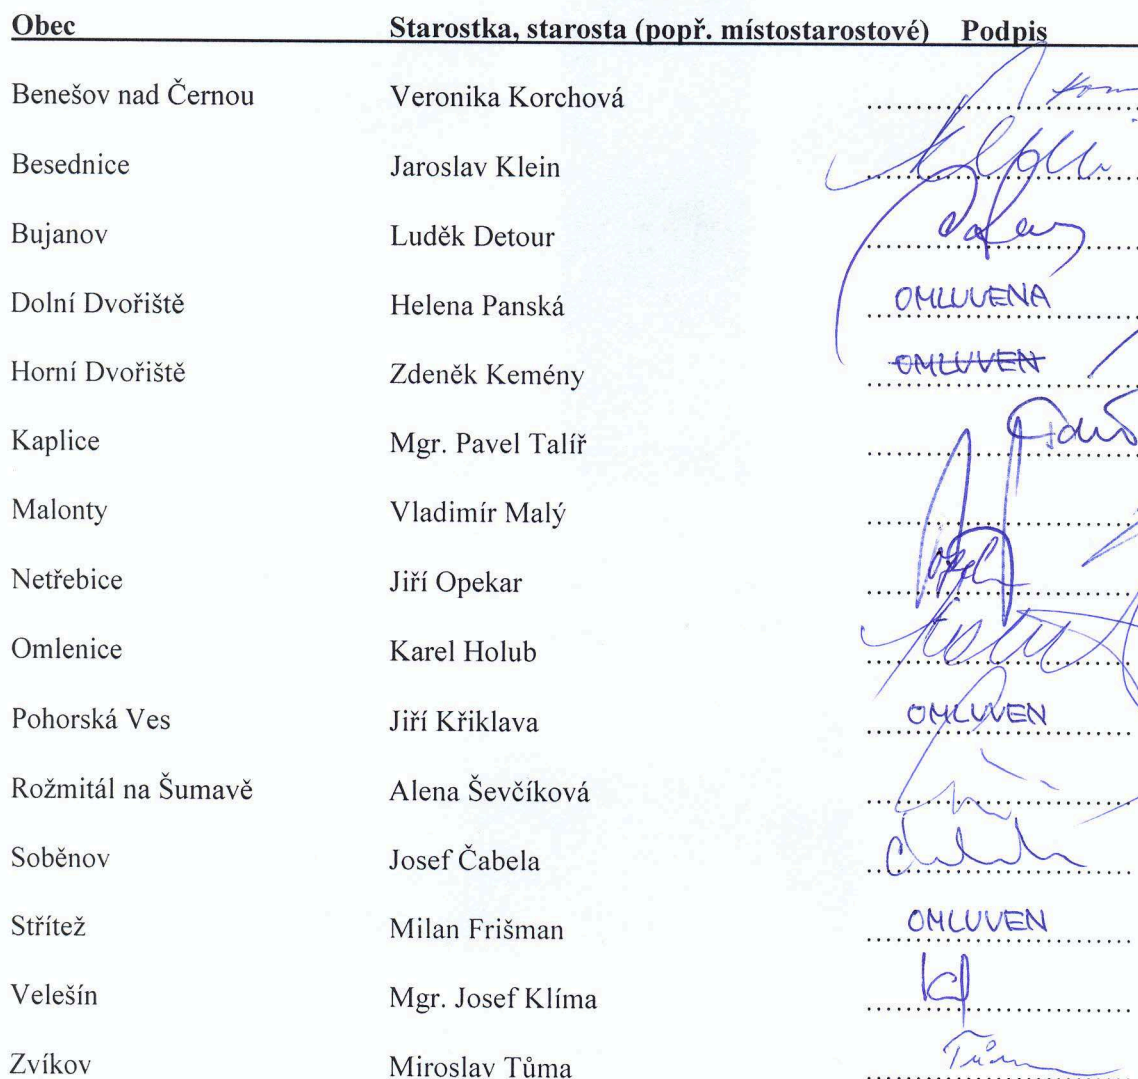 Obec Starostka, starosta (popř. místostarostové) Podpis
Benešov nad Černou Veronika Korchová
Besednice Jaroslav Klein
Bujanov Luděk Detour
Dolní Dvořiště Helena Panská OMLUVENA
Horní Dvořiště Zdeněk Kemény OMLUVEN
Kaplice Mgr. Pavel Talíř
Malonty Vladimír Malý
Netřebice Jiří Opekar
Omlenice Karel Holub
Pohorská Ves Jiří Křiklava OMLUVEN
Rožmitál na Šumavě Alena Ševčíková
Soběnov Josef Čabela
Střítež Milan Frišman OMLUVEN
Velešín Mgr. Josef Klíma
Zvíkov Miroslav Tůma Tůma